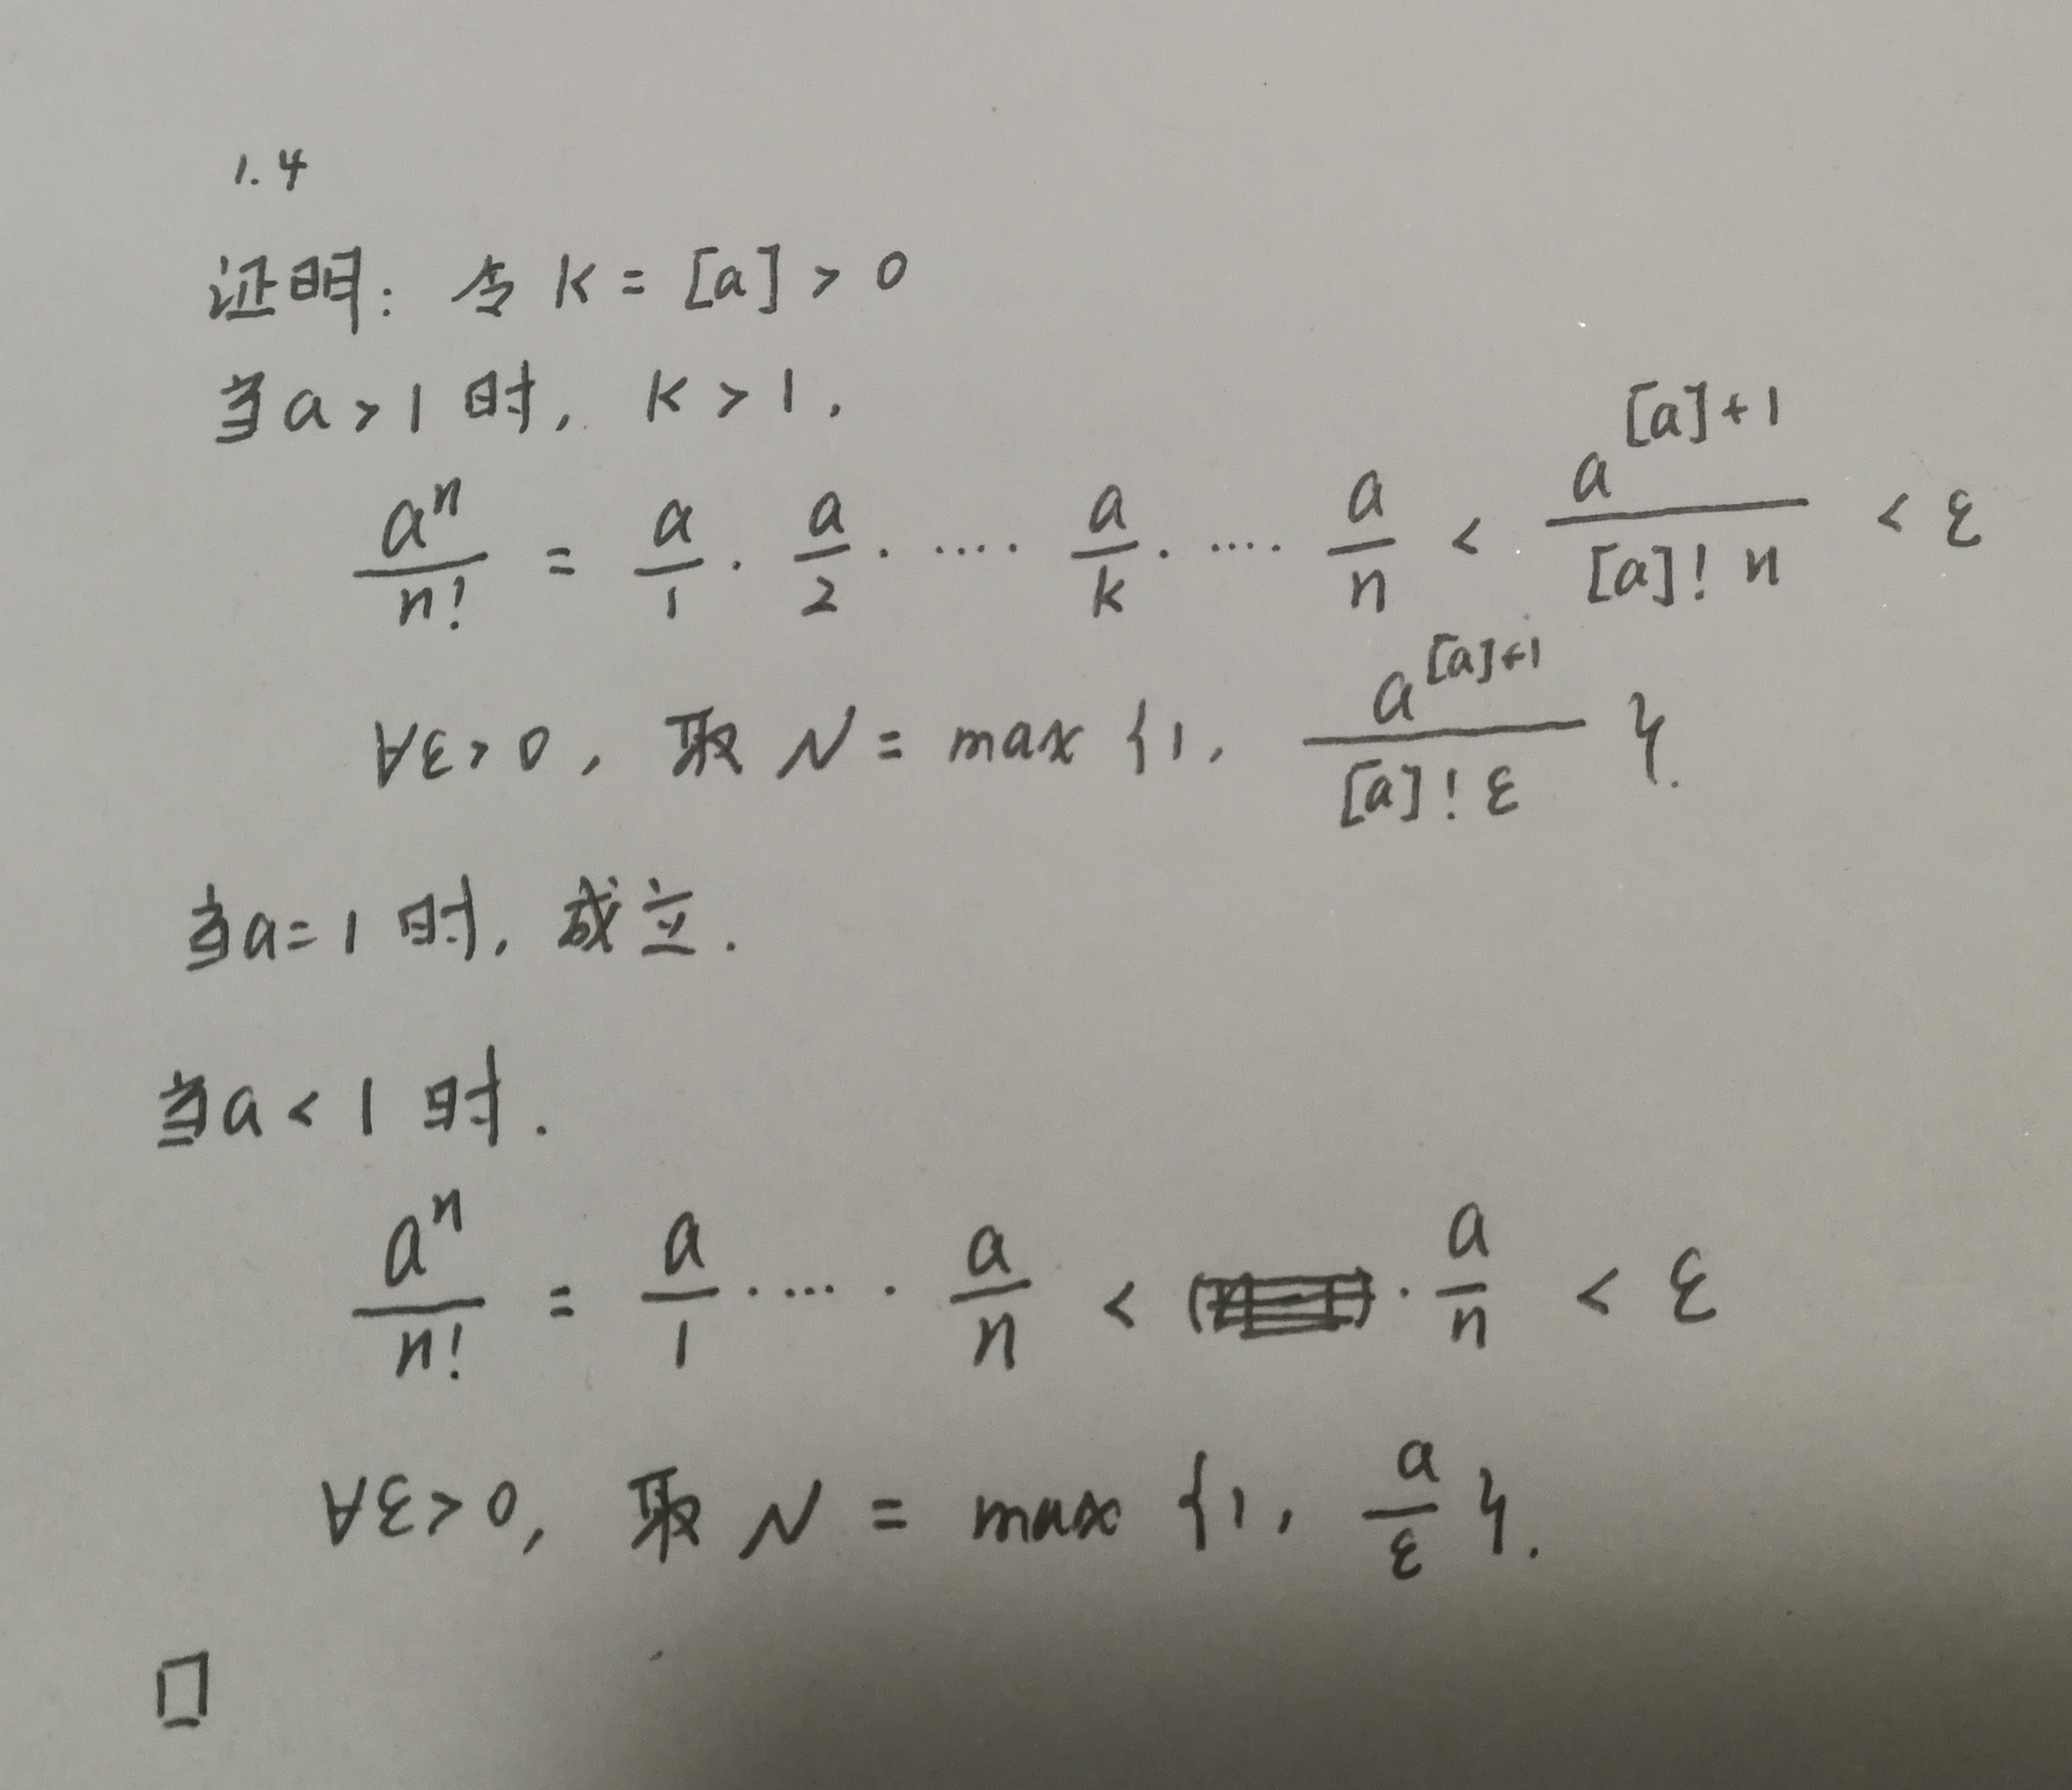 1.4
证明: 令 k = [a] > 0
当 a > 1 时, k > 1,
a^n/n! = a/1 · a/2 · ···· a/k · ···· a/n < a^([a]+1)/([a]! n) < ε
∀ε>0, 取 N = max {1, a^([a]+1)/([a]! ε)}.
当 a = 1 时, 成立.
当 a < 1 时.
a^n/n! = a/1 · ··· · a/n < · a/n < ε
∀ε<0, 取 N = max {1, a/ε}.
□